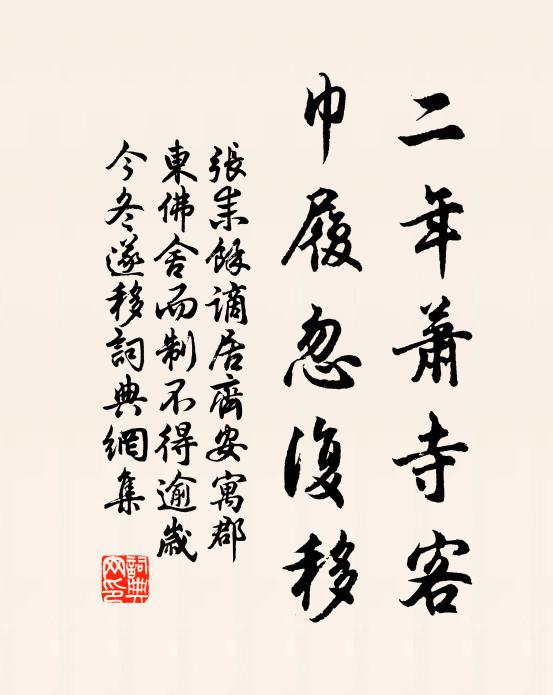 二年蕭寺客
巾履忽復移
張耒餘謫居齊安寓郡
東佛舍而制不得逾歲
今冬遂移詞典網集
詞典
网印